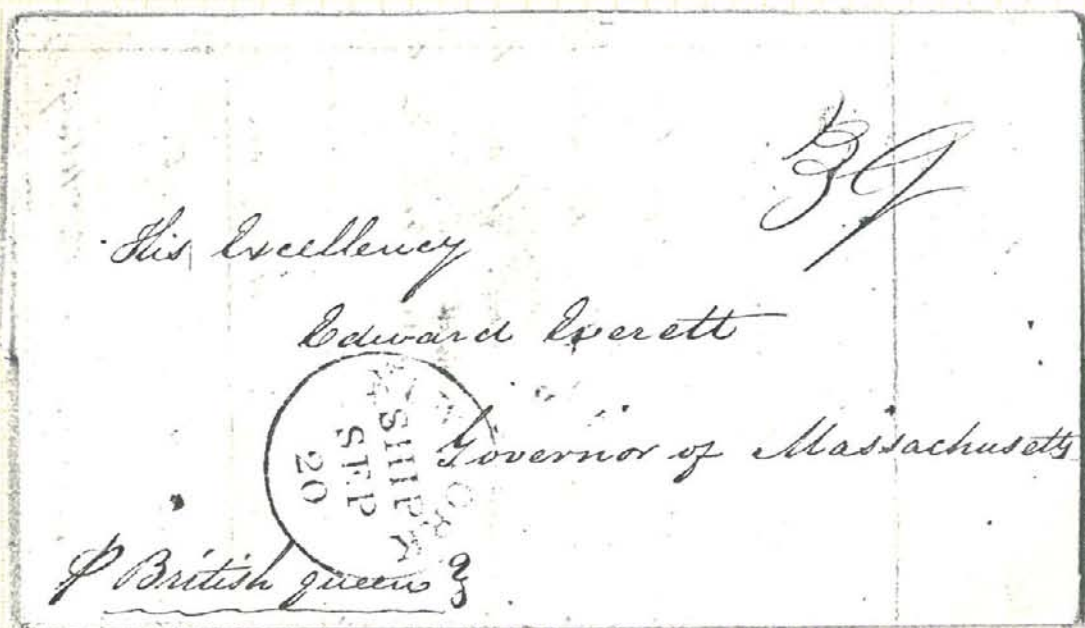 39
His Excellency
Edward Everett
Governor of Massachusetts
SHIP
SEP
20
p British queen